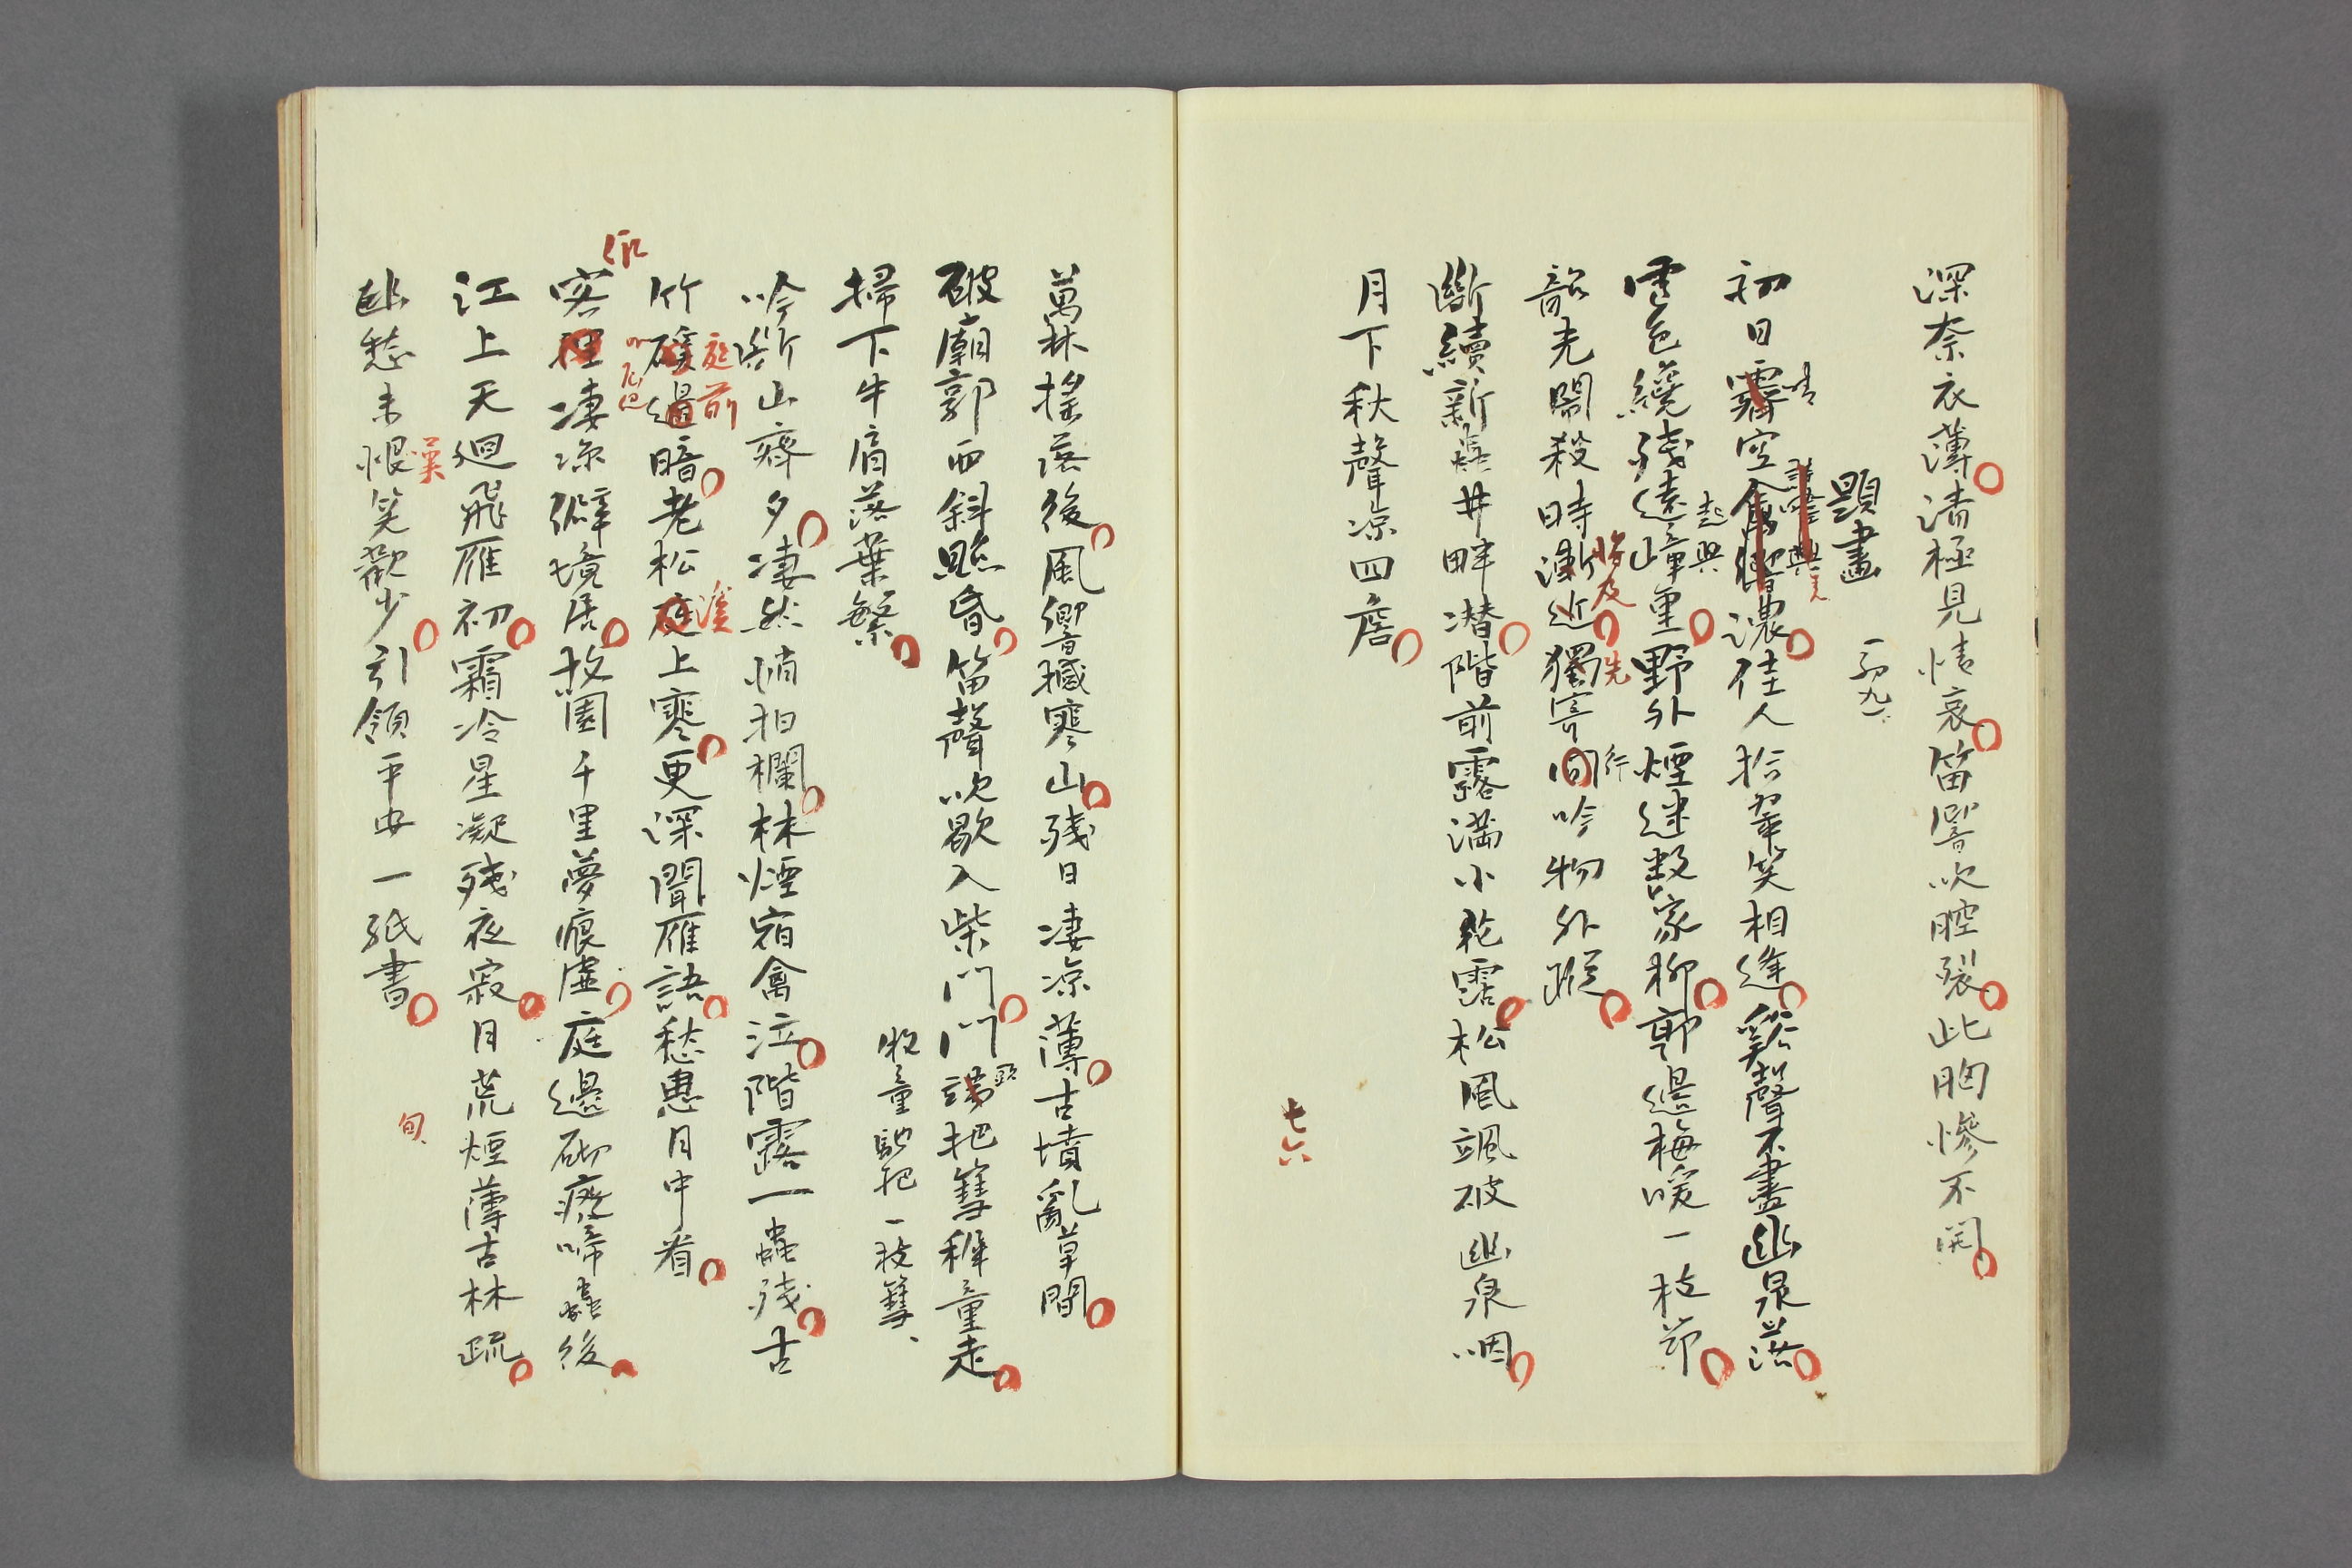 深奈衣薄清極見情哀笛響吹腔裂此胸慘不開
題畫
初日霽空濃佳人拾翠笑相逢谿聲不盡幽泉落
晴
詩 興
雪色繞殘遠嶂重野外煙迷數家柳郭邊梅暖一枝節
起興
韶光閙殺時漸近獨寄間吟物外蹤
將及
先
行
斷續新蛩井畔潛階前露滿小乾霑松風颯破幽泉咽
月下秋聲凉四簷
七六
萬林搖落後風響撼寒山殘日凄凉薄古墳亂草間
破廟郭西斜照昏笛聲吹歇入柴門門端把篲稚童走
牧童 把一枝篲
掃下牛肩落葉繁
吟斷山齋夕凄然悄拍欄林煙宿禽泣階露一蟲殘古
竹礙邊暗老松庭上寒更深聞雁語愁思月中看
庭前
溪
客裡凄凉僻境居故園千里夢痕虛庭邊砌癈啼蟲後
江上天廻飛雁初霜冷星凝殘夜寂月荒煙薄古林疏
幽愁未恨笑歡少引領平安一紙書
嘆